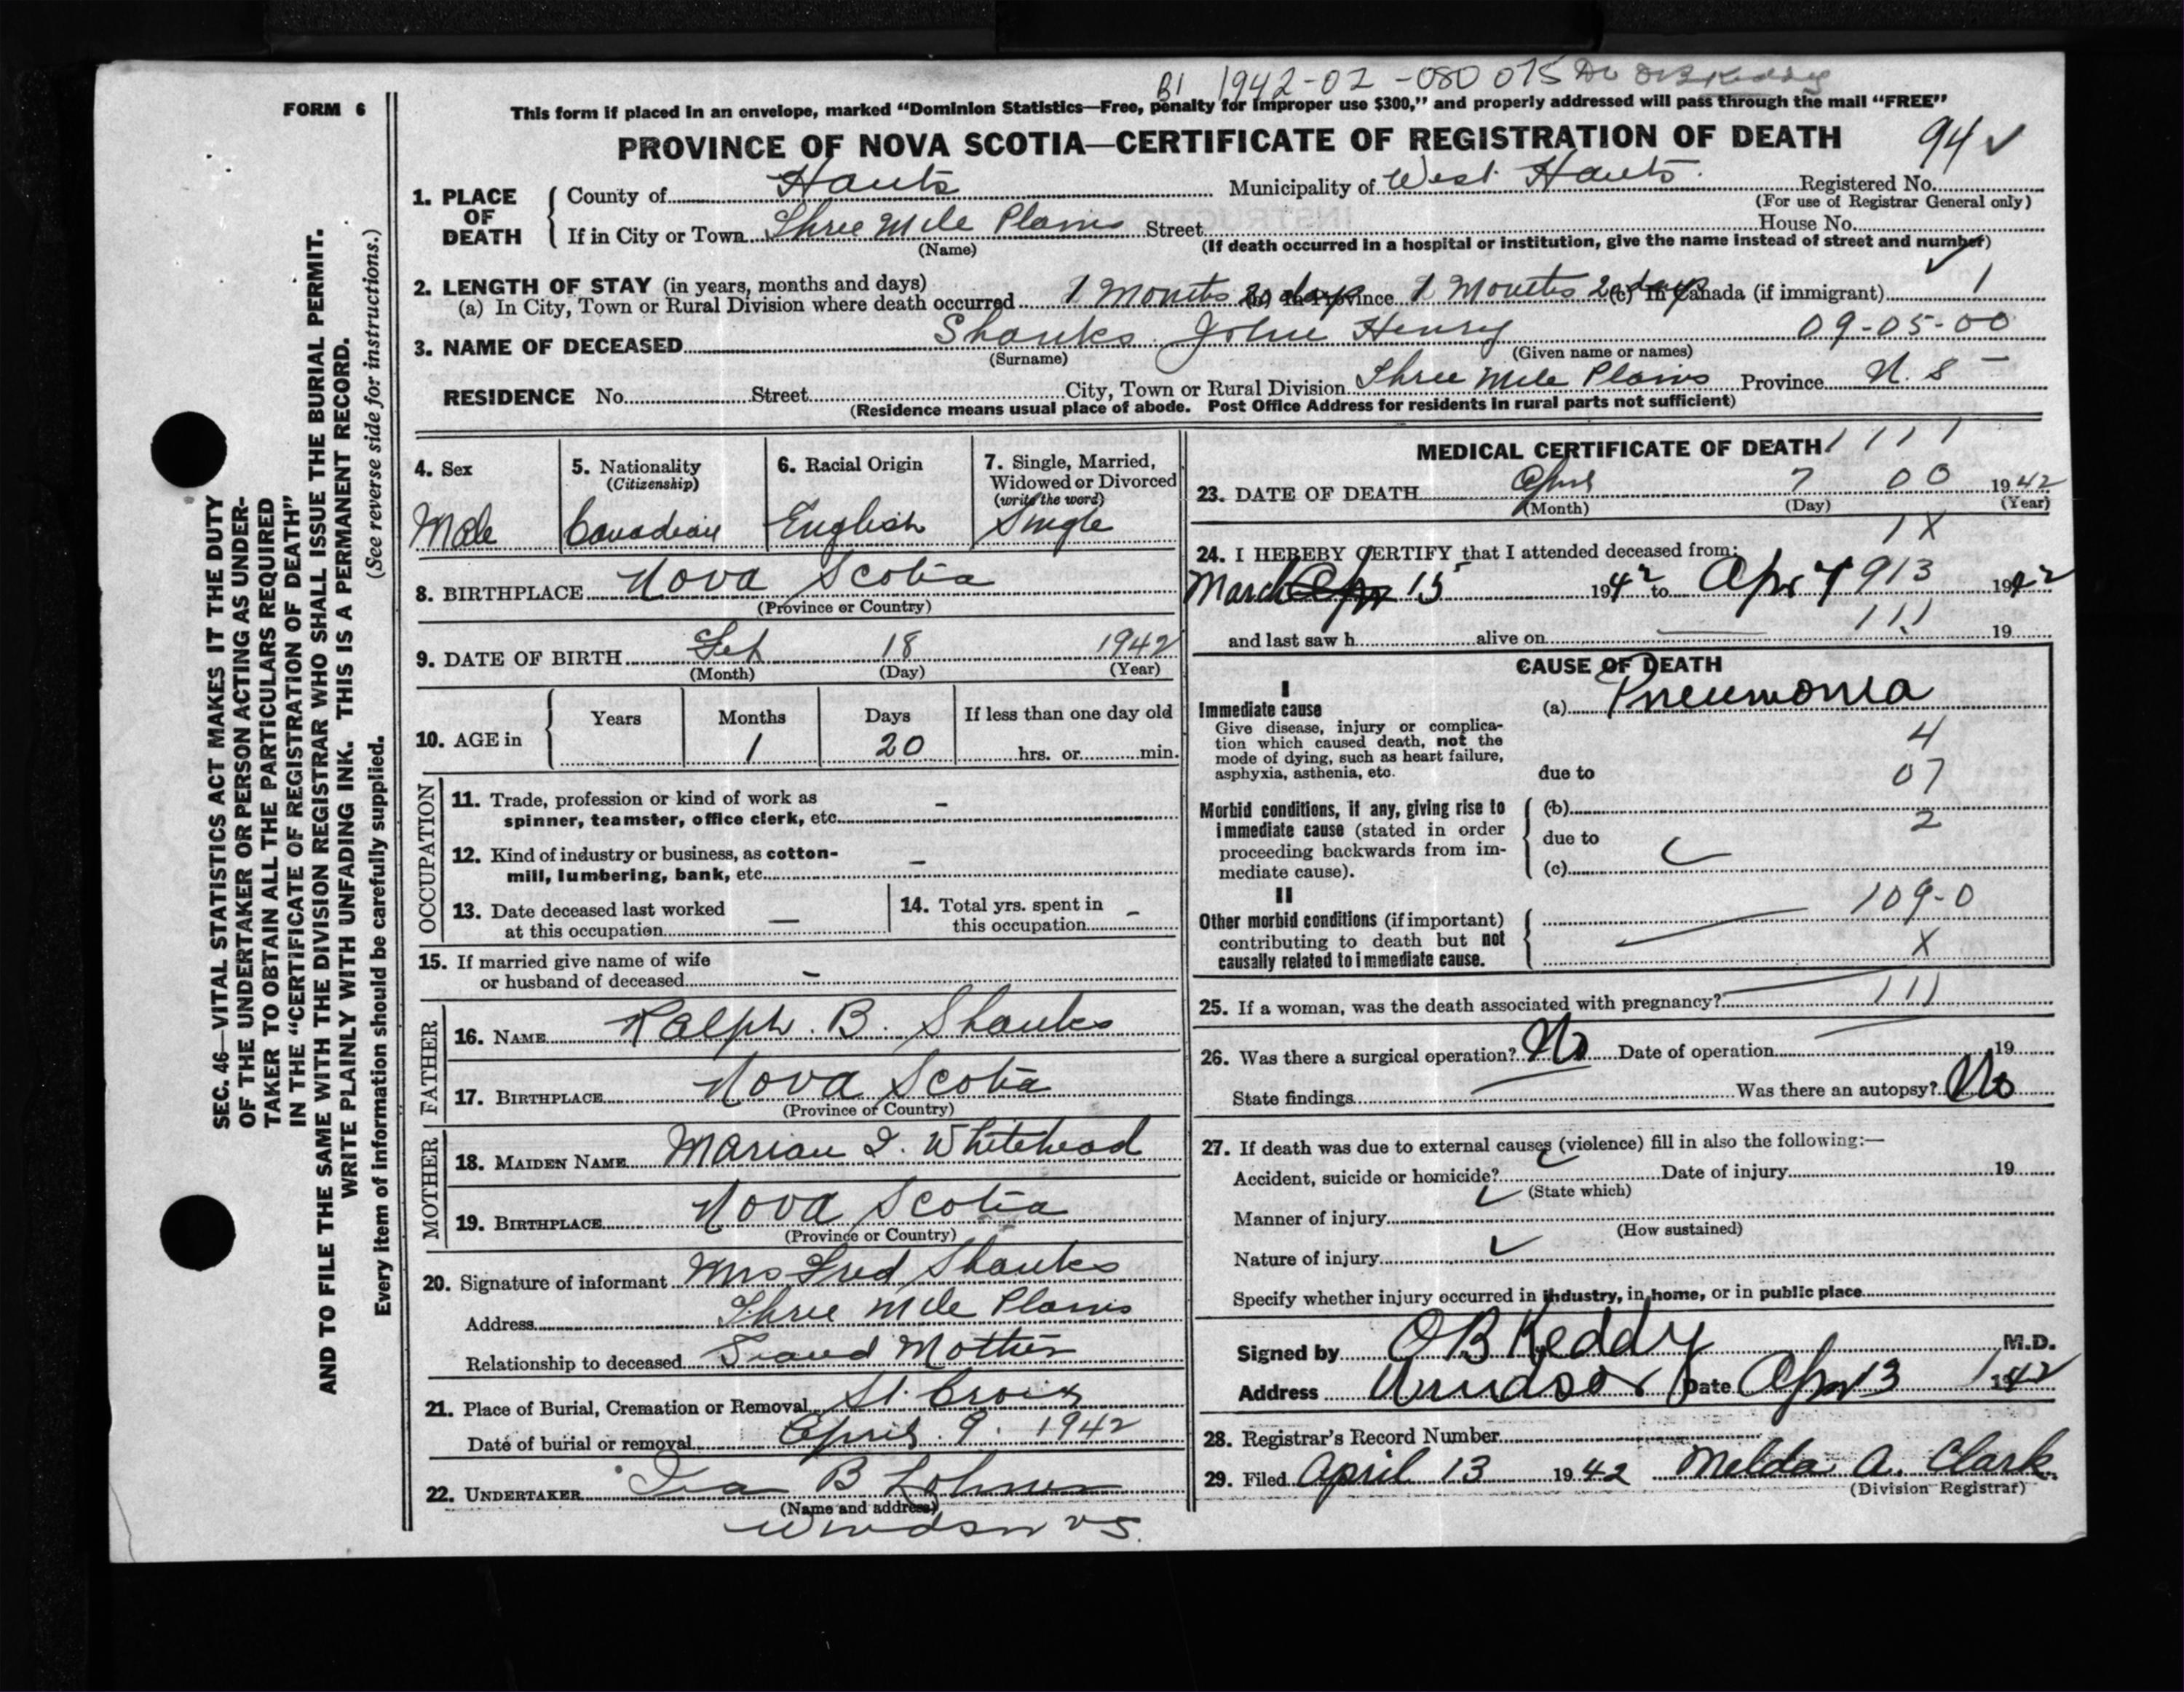 B1 1942-02-080075 Dr O B Keddy
FORM 6
This form if placed in an envelope, marked "Dominion Statistics—Free, penalty for improper use $300," and properly addressed will pass through the mail "FREE"
PROVINCE OF NOVA SCOTIA—CERTIFICATE OF REGISTRATION OF DEATH 94 ✓
1. PLACE OF DEATH
County of Hants Municipality of West Hants. Registered No.
(For use of Registrar General only)
If in City or Town Three Mile Plains Street House No.
(Name) (If death occurred in a hospital or institution, give the name instead of street and number)
2. LENGTH OF STAY (in years, months and days)
(a) In City, Town or Rural Division where death occurred 1 Months 20 days (b) In Province 1 Months 20 days (c) In Canada (if immigrant) 1
3. NAME OF DECEASED Shanks John Henry 09-05-00
(Surname) (Given name or names)
RESIDENCE No. Street City, Town or Rural Division Three Mile Plains Province N. S
(Residence means usual place of abode. Post Office Address for residents in rural parts not sufficient)
4. Sex
Male
5. Nationality
(Citizenship)
Canadian
6. Racial Origin
English
7. Single, Married,
Widowed or Divorced
(write the word)
Single
8. BIRTHPLACE Nova Scotia
(Province or Country)
9. DATE OF BIRTH Feb 18 1942
(Month) (Day) (Year)
10. AGE in
Years Months Days If less than one day old
1 20 hrs. or min.
OCCUPATION
11. Trade, profession or kind of work as
spinner, teamster, office clerk, etc. –
12. Kind of industry or business, as cotton-
mill, lumbering, bank, etc. –
13. Date deceased last worked
at this occupation —
14. Total yrs. spent in
this occupation –
15. If married give name of wife
or husband of deceased –
FATHER
16. NAME Ralph. B. Shanks
17. BIRTHPLACE Nova Scotia
(Province or Country)
MOTHER
18. MAIDEN NAME Marian I. Whitehead
19. BIRTHPLACE Nova Scotia
(Province or Country)
20. Signature of informant Mrs Fred Shanks
Address Three Mile Plains
Relationship to deceased Grand Mother
21. Place of Burial, Cremation or Removal St. Croix
Date of burial or removal April. 9. 1942
22. UNDERTAKER Ira B Lohnes
(Name and address)
Windsor NS.
MEDICAL CERTIFICATE OF DEATH 1 1 1 1
23. DATE OF DEATH April 7 00 1942
(Month) (Day) (Year)
1X
24. I HEREBY CERTIFY that I attended deceased from:
March Apr 15 1942 to Apr 7 913 1942
111
and last saw h alive on 19
CAUSE OF DEATH
I
Immediate cause
(a) Pneumonia
Give disease, injury or complica-
tion which caused death, not the
mode of dying, such as heart failure,
asphyxia, asthenia, etc.
4
due to 07
Morbid conditions, if any, giving rise to
immediate cause (stated in order
proceeding backwards from im-
mediate cause).
(b)
2
due to
(c)
II
109-0
Other morbid conditions (if important)
contributing to death but not
causally related to immediate cause.
X
25. If a woman, was the death associated with pregnancy? 111
26. Was there a surgical operation? No Date of operation 19
State findings Was there an autopsy? No
27. If death was due to external causes (violence) fill in also the following:—
Accident, suicide or homicide? Date of injury 19
(State which)
Manner of injury
(How sustained)
Nature of injury
Specify whether injury occurred in industry, in home, or in public place
Signed by O B Keddy M.D.
Address Windsor Date Apr 13 1942
28. Registrar's Record Number
29. Filed April 13 1942 Melda A. Clark.
(Division Registrar)
SEC. 46—VITAL STATISTICS ACT MAKES IT THE DUTY
OF THE UNDERTAKER OR PERSON ACTING AS UNDER-
TAKER TO OBTAIN ALL THE PARTICULARS REQUIRED
IN THE "CERTIFICATE OF REGISTRATION OF DEATH"
AND TO FILE THE SAME WITH THE DIVISION REGISTRAR WHO SHALL ISSUE THE BURIAL PERMIT.
WRITE PLAINLY WITH UNFADING INK. THIS IS A PERMANENT RECORD.
Every item of information should be carefully supplied. (See reverse side for instructions.)